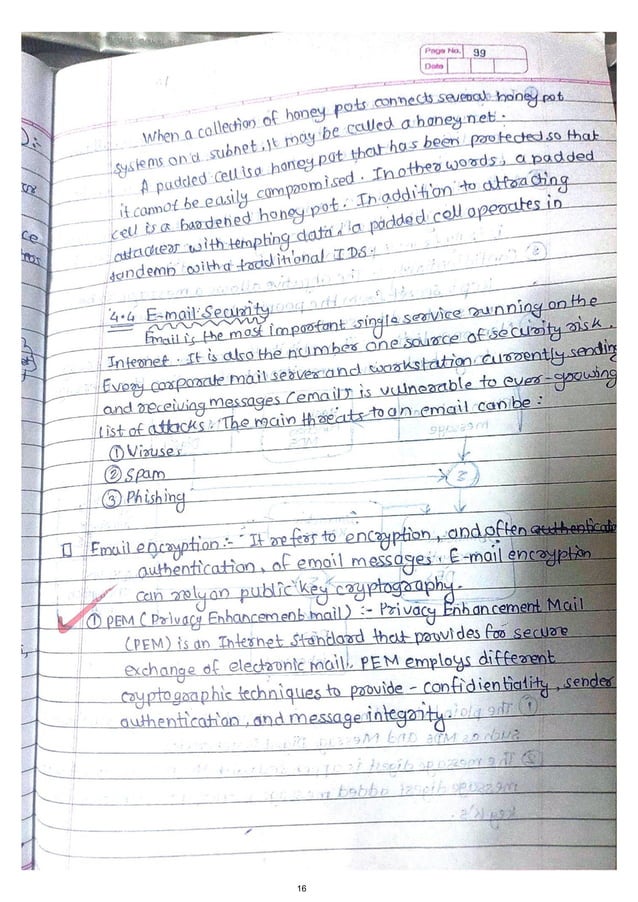 Page No. 99
Date
When a collection of honey pots connects several honey pot
systems on a subnet, it may be called a honey net.
A padded cell is a honey pot that has been protected so that
it cannot be easily compromised. In other words, a padded
cell is a hardened honey pot. In addition to attracting
attackers with tempting data, a padded cell operates in
tandemn with a traditional IDS.
4.4 E-mail Security
Email is the most important single service running on the
Internet. It is also the number one source of security risk.
Every corporate mail server and workstation currently sending
and receiving messages (emails) is vulnerable to ever-growing
list of attacks. The main threats to an email can be:
① Viruses
② Spam
③ Phishing
Email encryption:- It refers to encryption, and often authenticate
authentication, of email messages. E-mail encryption
can rely on public key cryptography.
① PEM (Privacy Enhancement mail) :- Privacy Enhancement Mail
(PEM) is an Internet Standard that provides for secure
exchange of electronic mail. PEM employs different
cryptographic techniques to provide - confidientiality, sender
authentication, and message integrity.
16